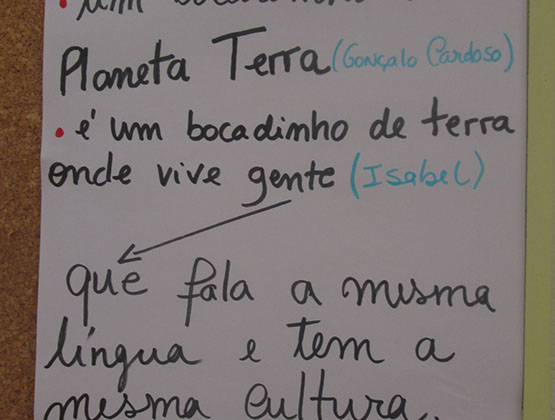 • um bocadinho
Planeta Terra (Gonçalo Cardoso)
• é um bocadinho de terra
onde vive gente (Isabel)
que fala a mesma
língua e tem a
mesma cultura.